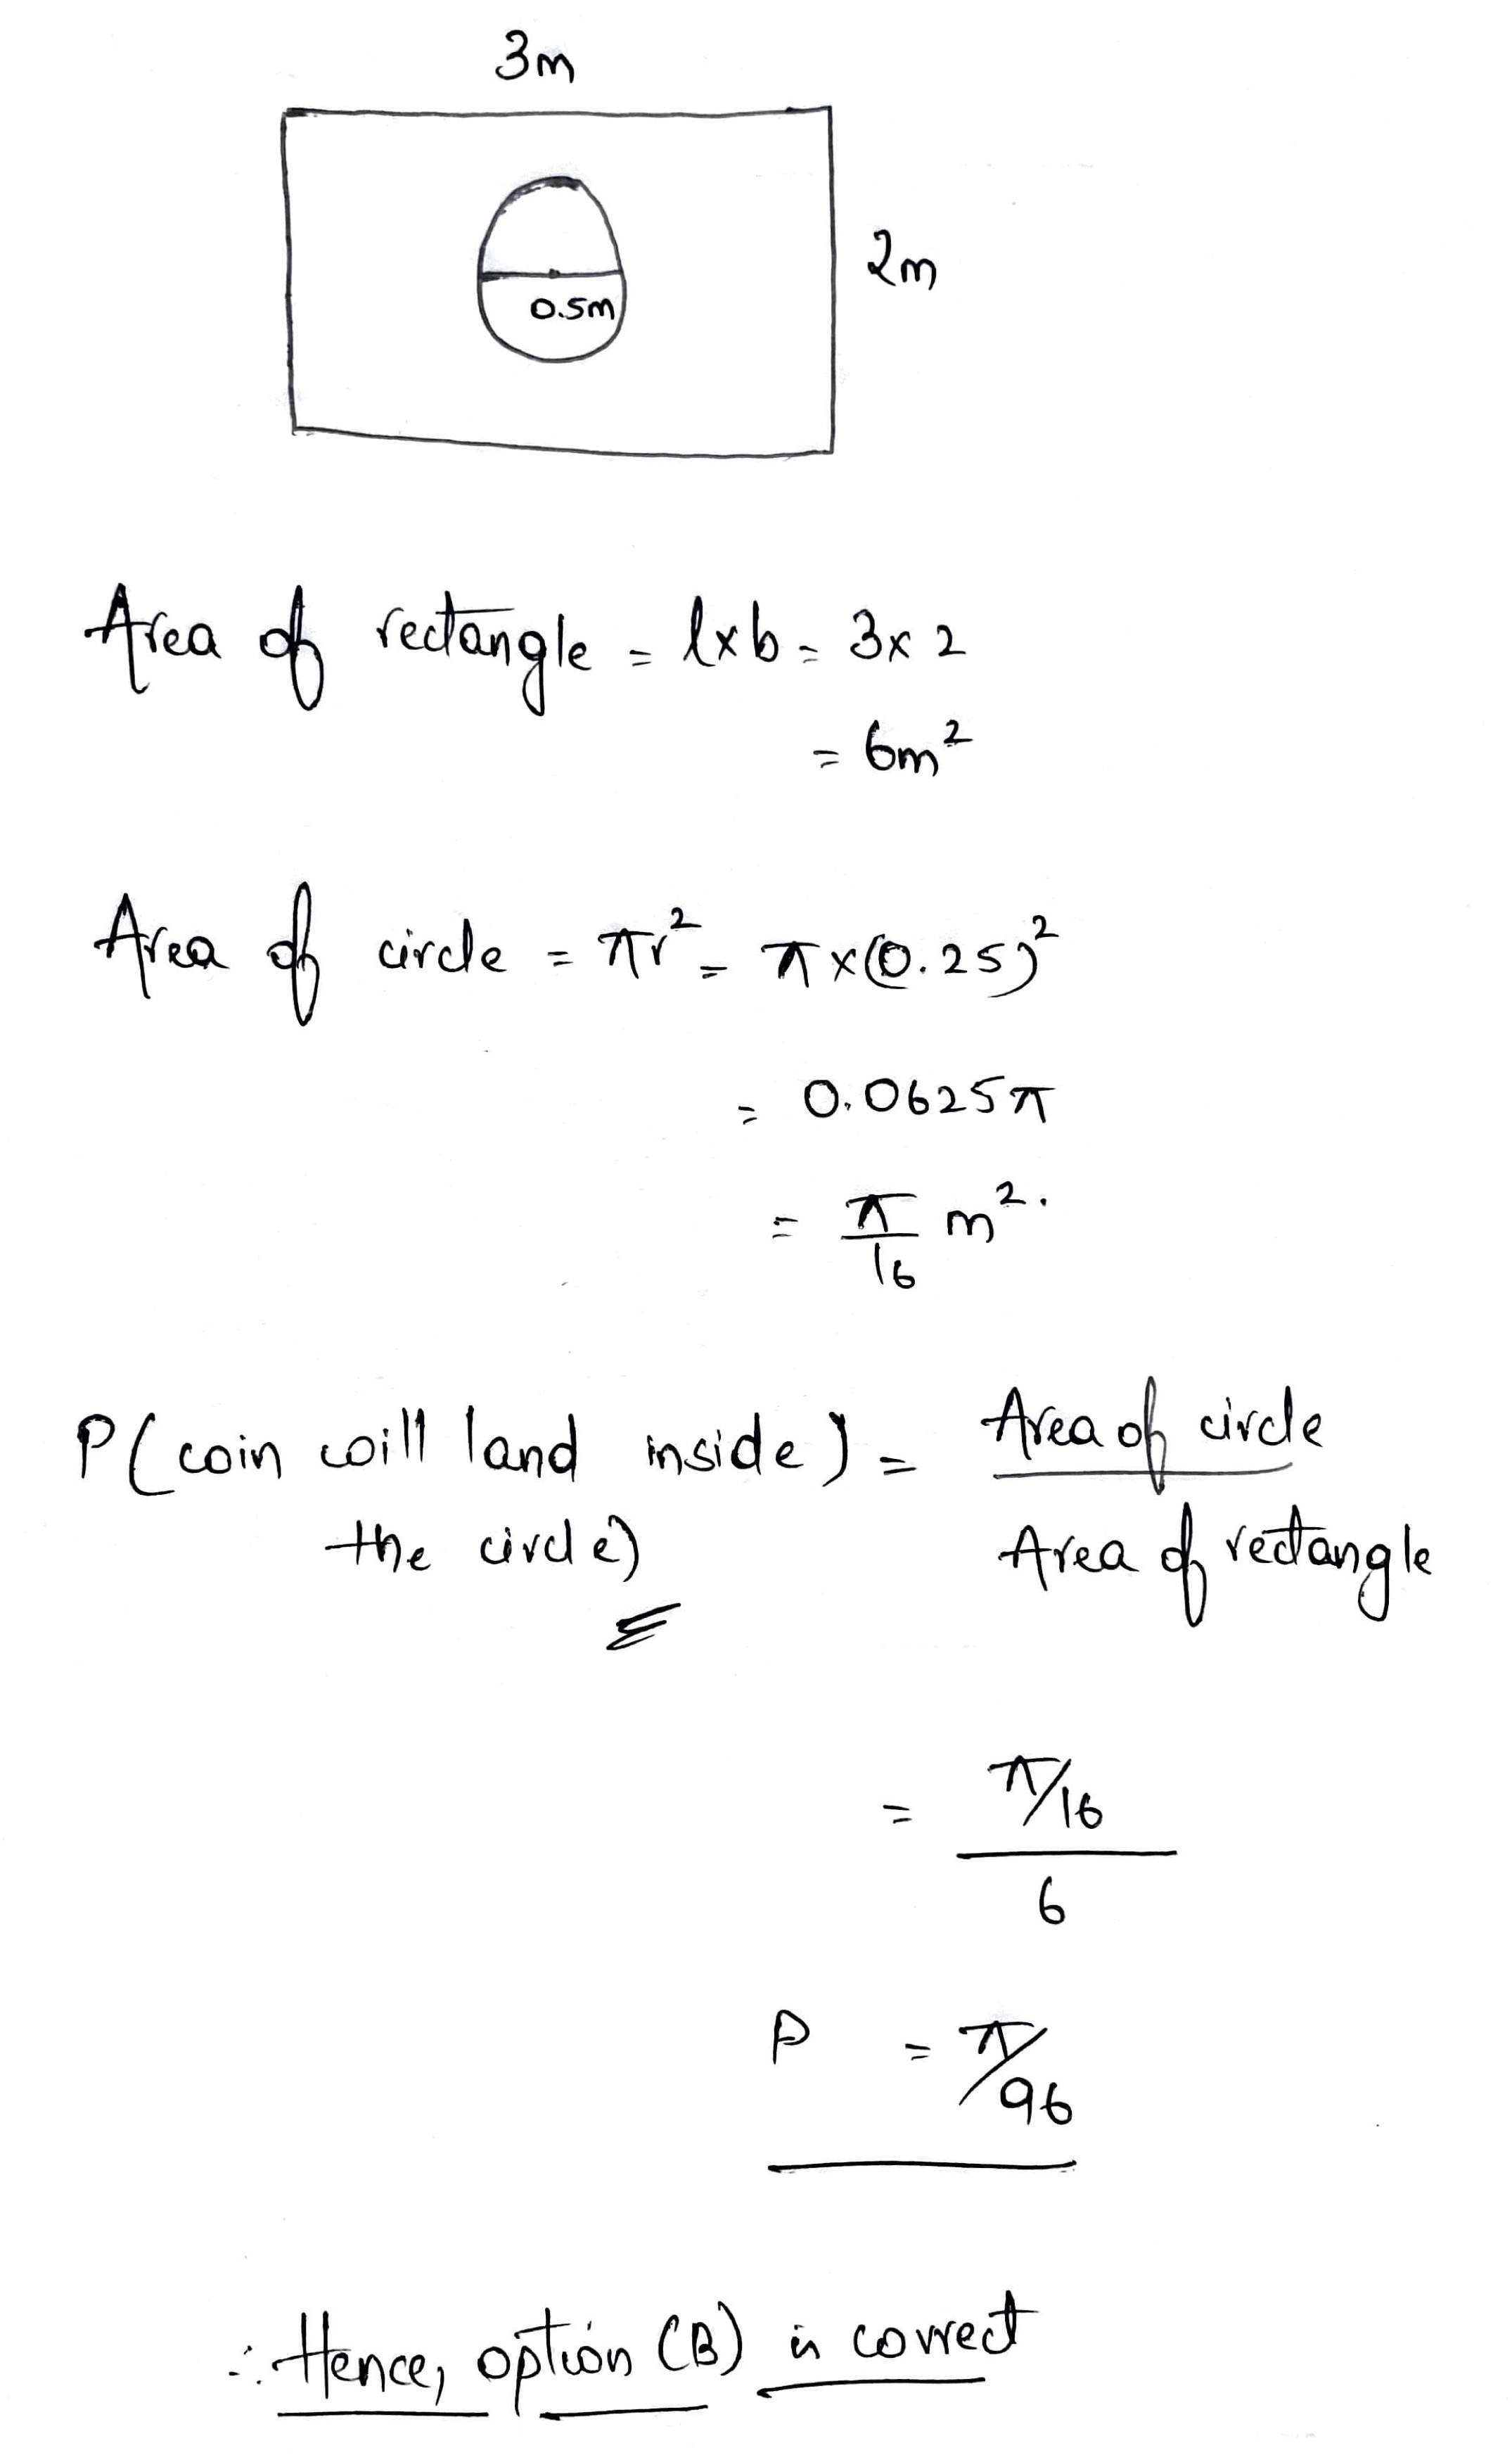 3m
2m
0.5m
Area of rectangle = l×b = 3×2
= 6m²
Area of circle = πr² = π×(0.25)²
= 0.0625π
= π/16 m².
P(coin will land inside) = Area of circle
the circle) Area of rectangle
= π/16
6
P = π/96
∴ Hence, option (B) is correct